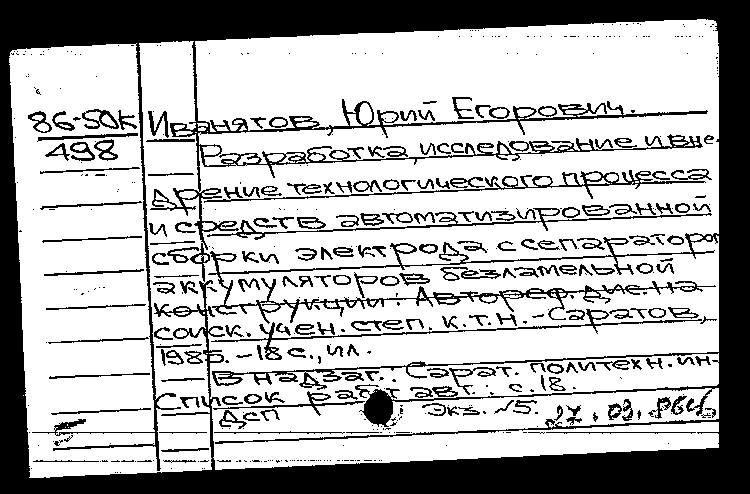 86-50к Иванятов, Юрий Егорович.
498 Разработка, исследование и вне-
дрение технологического процесса
и средств автоматизированной
сборки электрода с сепаратором
аккумуляторов безламельной
конструкции: Автореф. дис. на
соиск. учен. степ. к.т.н. -Саратов,
1985. -18 с., ил.
В надзаг.: Сарат. политехн. ин-
Список работ авт.: с. 18.
ДСП Экз. №5. 27.03.86
5